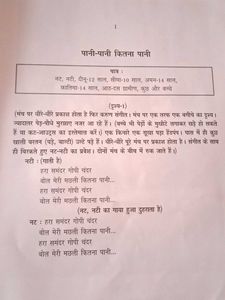 1
पानी-पानी कितना पानी
पात्र :
नट, नटी, दीनू-12 साल, सीमा-10 साल, अमन-14 साल,
फ़ातिमा-14 साल, आठ-दस ग्रामीण, कुछ और बच्चे
(दृश्य-1)
(मंच पर धीरे-धीरे प्रकाश होता है फिर करुण संगीत। मंच पर एक तरफ एक बगीचे का दृश्य।
ज्यादातर पेड़-पौधे मुरझाए नजर आ रहे हैं। (बच्चे भी पेड़ों के मुखौटे लगाकर खड़े हो सकते हैं
या कट-आउट्स का इस्तेमाल करें।) एक किनारे एक सूखा पड़ा हैंडपंप। पास में ही कुछ
खाली बरतन (घड़े, बाल्टी) उल्टे पड़े हैं। धीरे-धीरे पूरे मंच पर प्रकाश होता है। संगीत के साथ
ही थिरकते हुए नट-नटी का प्रवेश। दोनों मंच के बीच में रुक जाते हैं।)
नटी : (गाती है)
हरा समंदर गोपी चंदर
बोल मेरी मछली कितना पानी...
हरा समंदर गोपी चंदर
बोल मेरी मछली कितना पानी...
(नट, नटी का गाया हुआ दुहराता है)
नट : हरा समंदर गोपी चंदर
बोल मेरी मछली कितना पानी...
हरा समंदर गोपी चंदर
बोल मेरी मछली कितना पानी...